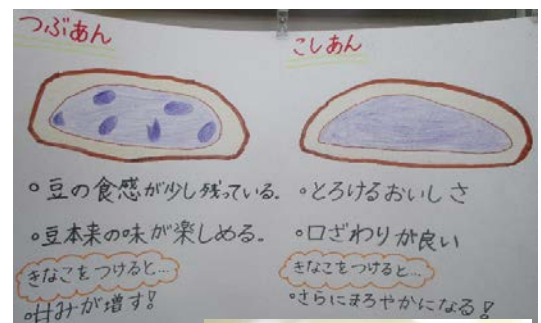 つぶあん
。豆の食感が少し残っている。
。豆本来の味が楽しめる。
きなこをつけると…
。甘みが増す!
こしあん
。とろけるおいしさ
。口ざわりが良い
きなこをつけると…
。さらにまろやかになる!